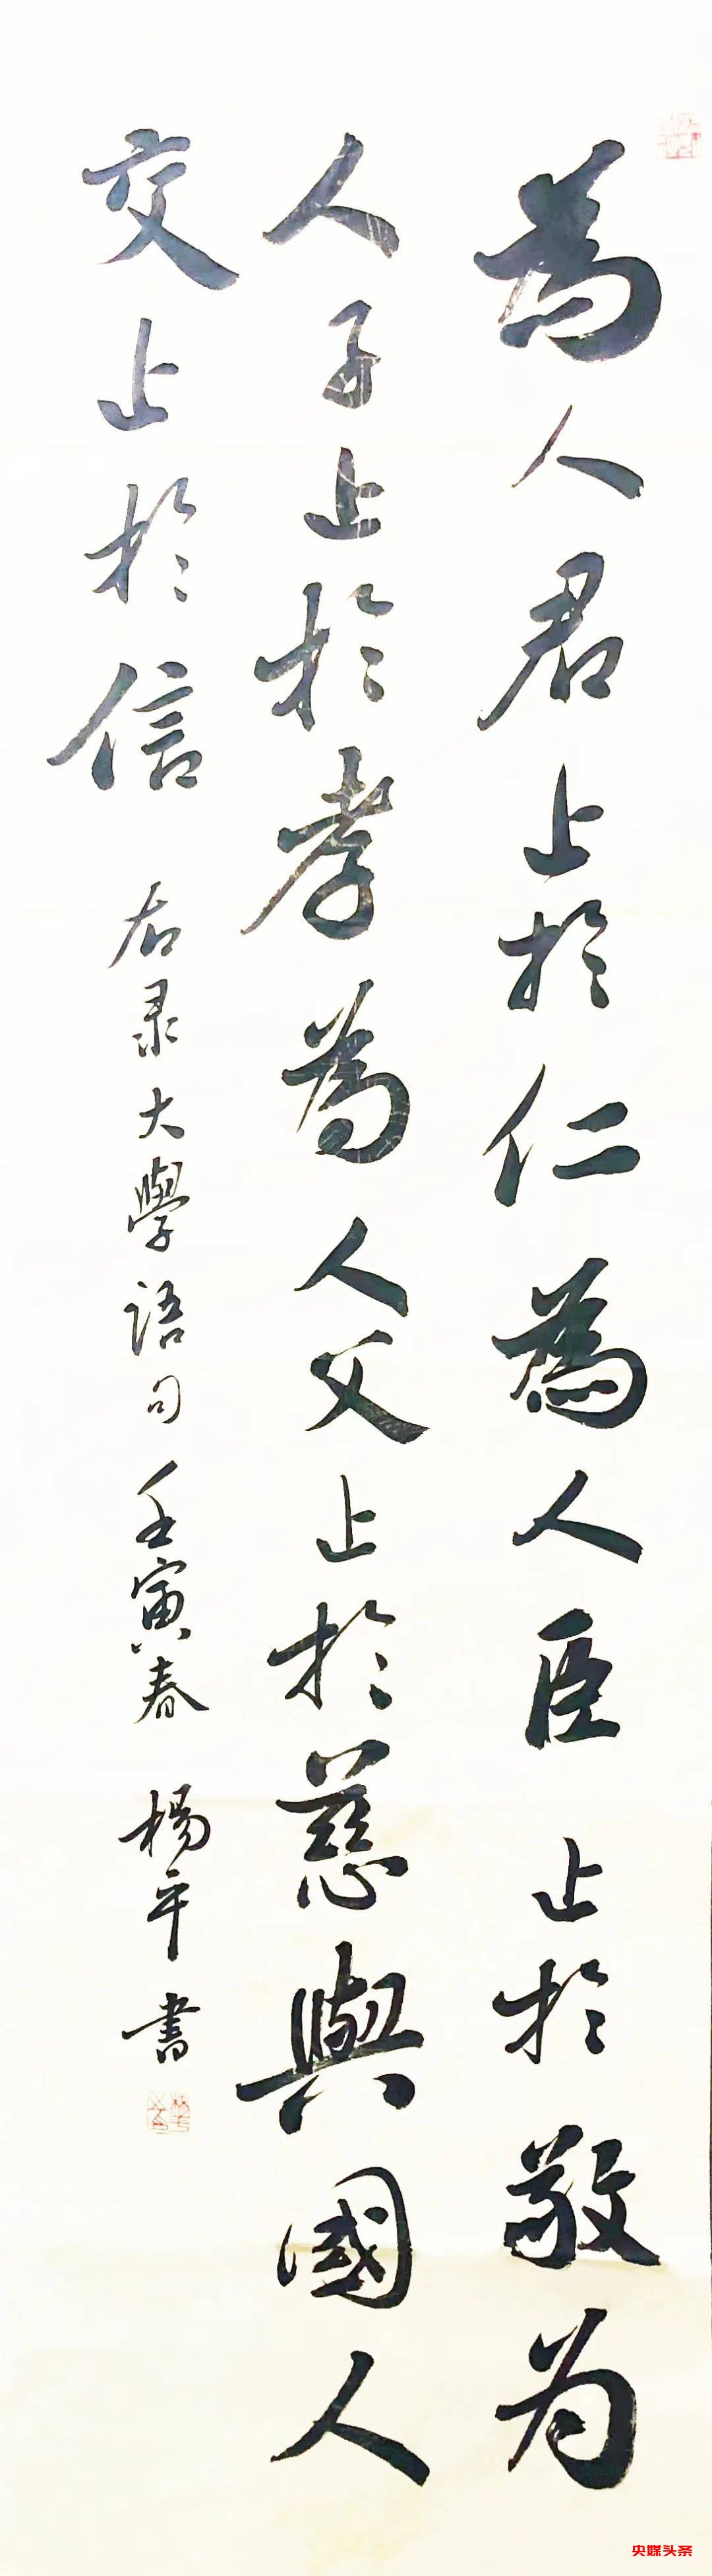 為人君止於仁為人臣止於敬为
人子止於孝為人父止於慈與國人
交止於信 右录大學語句 壬寅春 楊平書
央媒头条